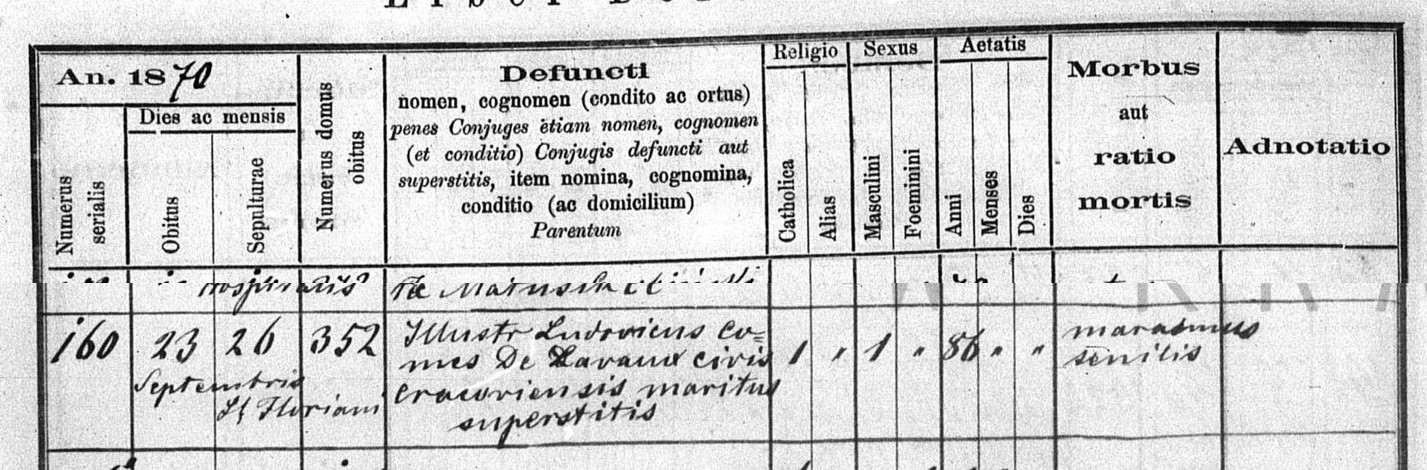 An. 1870
Dies ac mensis
Numerus serialis
Obitus
Sepulturae
Numerus domus obitus
Defuncti
nomen, cognomen (condito ac ortus)
penes Conjuges etiam nomen, cognomen
(et conditio) Conjugis defuncti aut
superstitis, item nomina, cognomina,
conditio (ac domicilium)
Parentum
Religio
Catholica
Alias
Sexus
Masculini
Foeminini
Aetatis
Anni
Menses
Dies
Morbus
aut
ratio
mortis
Adnotatio
160 23 26 352 Illustr Ludovicus Co= 1 " 1 " 86 " " marasmus
Septembris mes De Lavaux civis senilis
St Floriani Cracoviensis maritus
superstitis